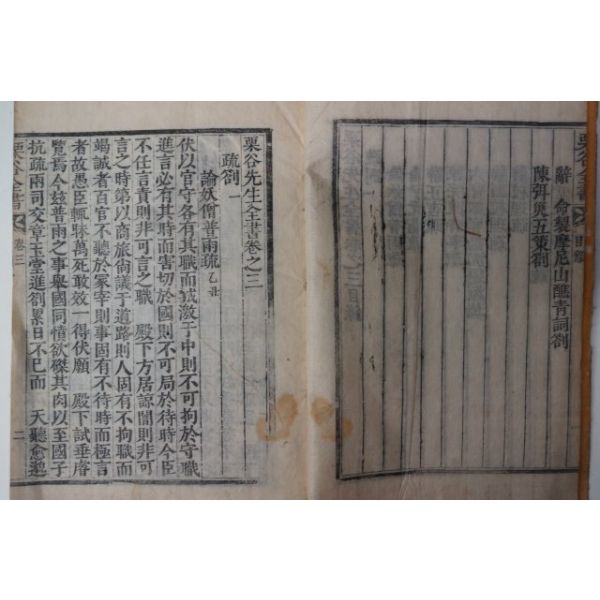 辭 命製摩尼山醮青詞劄
陳弭災五策劄
栗谷全書
栗谷先生全書卷之三
疏劄一
論妖僧普雨疏 乙丑
伏以官守各有其職而誠激于中則不可拘於守職
進言必有其時而害切於國則不可局於待時今臣
不任言責則非可言之職 殿下方居諒闇則非可
言之時第以商旅尙議于道路則人固有不拘職而
竭誠者百官不聽於冢宰則事固有不待時而極言
者故愚臣輒昧萬死敢效一得伏願 殿下試垂睿
覽焉今玆普雨之事舉國同憤欲磔其肉以至國子
抗疏兩司交章玉堂進劄累日不已而 天聽愈邈
栗谷全書 卷三 二